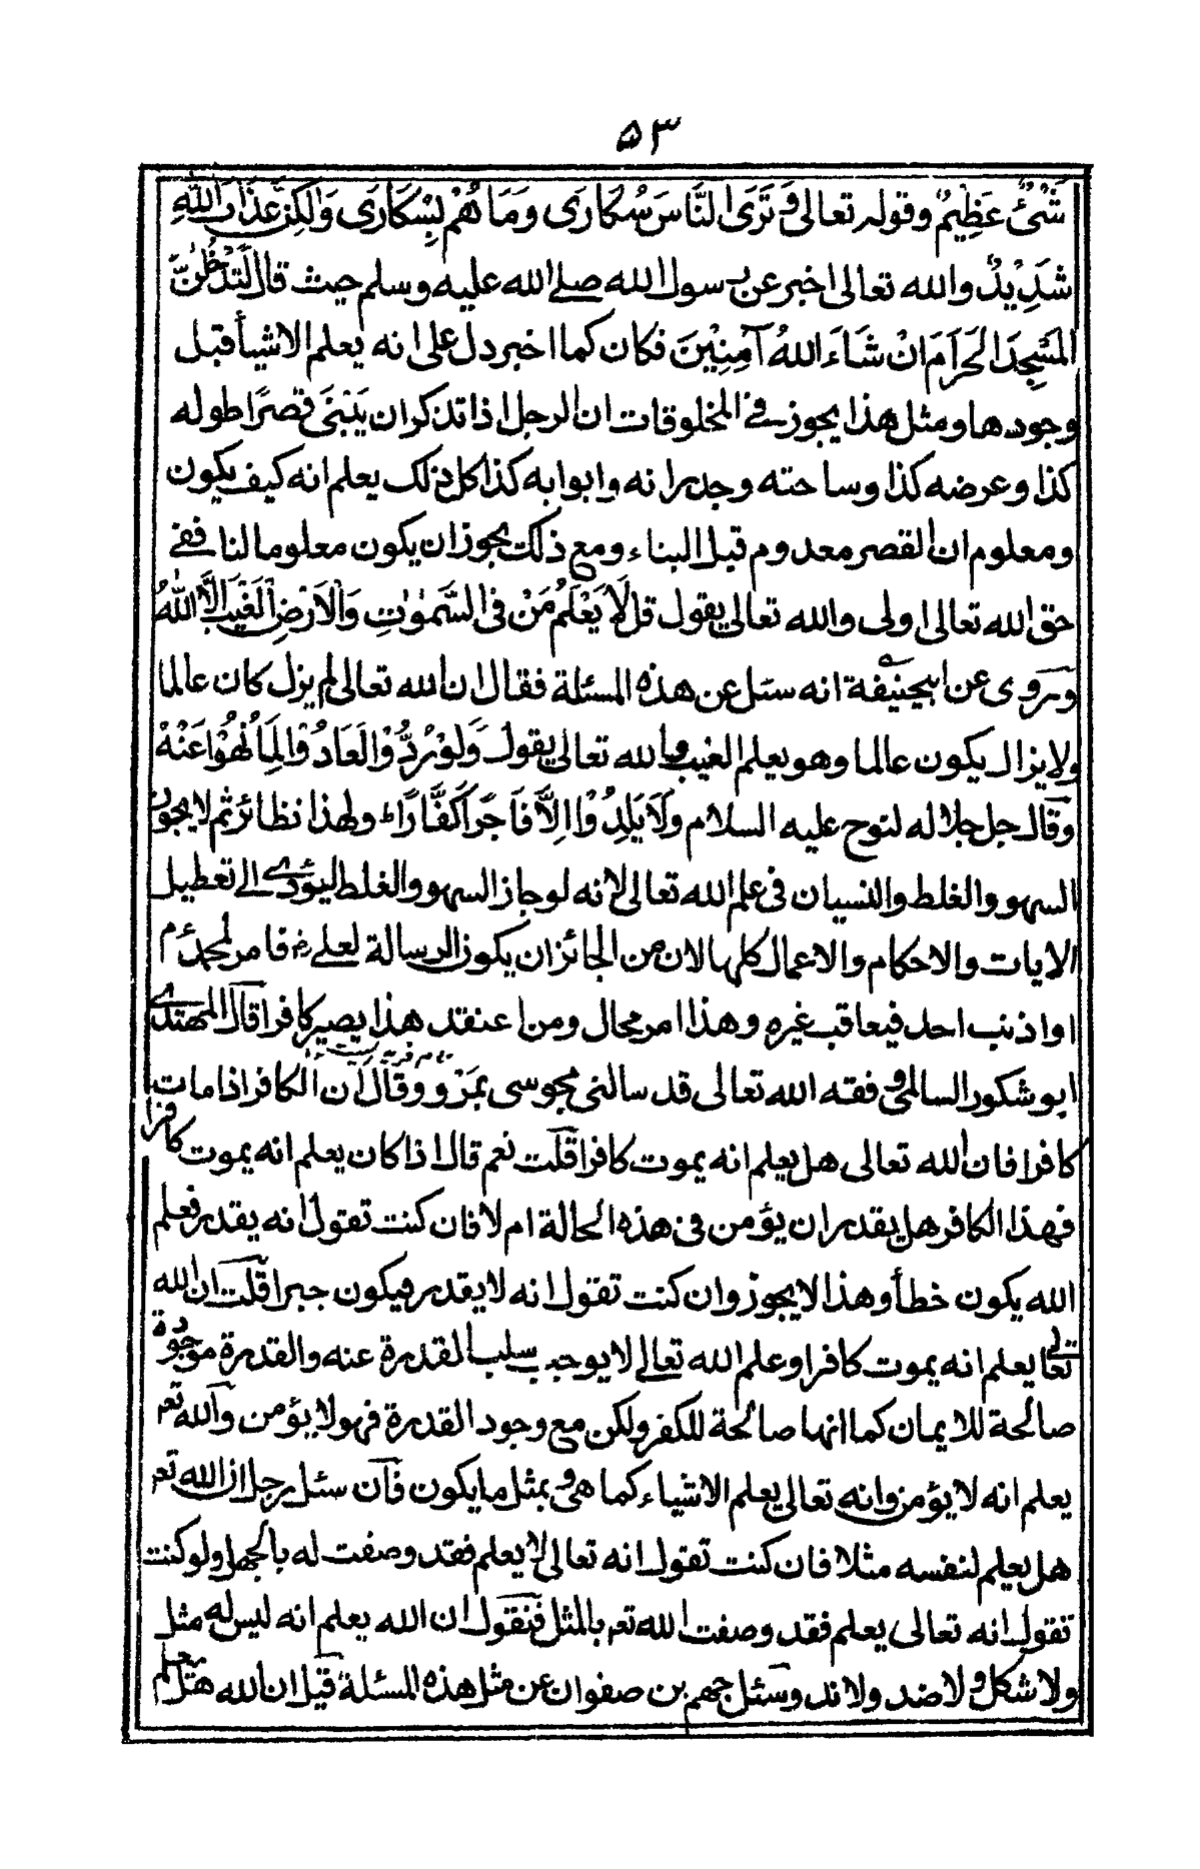 ٥٣
شَئٌ عَظِيْمٌ وقوله تعالى وَتَرَى النَّاسَ سُكَارَى وَمَا هُمْ بِسُكَارَى وَلٰكِنَّ عَذَابَ اللهِ
شَدِيْدٌ والله تعالى اخبر عن رسول الله صلى الله عليه وسلم حيث قال لَتَدْخُلُنَّ
الْمَسْجِدَ الْحَرَامَ اِنْ شَاءَ اللهُ آمِنِيْنَ فكان كما اخبر دل على انه يعلم الاشياء قبل
وجودها ومثل هذا يجوز فى المخلوقات ان الرجل اذا تذكر ان يَبْنَى قصرًا طوله
كذا وعرضه كذا وساحته وجدرانه وابوابه كذا كل ذلك يعلم انه كيف يكون
ومعلوم ان القصر معدوم قبل البناء ومع ذلك يجوز ان يكون معلوما لنا ففى
حق الله تعالى اولى والله تعالى يقول قل لَا يَعْلَمُ مَنْ فِى السَّمٰوٰتِ وَالْاَرْضِ الْغَيْبَ اِلَّا اللهُ
وروى عن ابيحنيفة انه سئل عن هذه المسئلة فقال ان الله تعالى لم يزل كان عالما
ولا يزال يكون عالما وهو يعلم الغيب والله تعالى يقول وَلَوْ رُدُّوْا لَعَادُوْا لِمَا نُهُوْا عَنْهُ
وقال جل جلاله لنوح عليه السلام وَلَا يَلِدُوْا اِلَّا فَاجِرًا كَفَّارًا ولهذا نظائر ثم لا يجوز
السهو والغلط والنسيان فى علم الله تعالى لانه لو جاز السهو والغلط ليؤدى الى تعطيل
الايات والاحكام والاعمال كلها لان من الجائز ان يكون الرسالة لعلى فامر لمحمد
او اذنب احد فيعاقب غيره وهذا امر محال ومن اعتقد هذا يصير كافرا قال المهتدى
ابو شكور السالمى وفقه الله تعالى قد سالنى مجوسى بمَرْو وقال ان الكافر اذا مات
كافرا فان الله تعالى هل يعلم انه يموت كافرا قلت نعم قال اذا كان يعلم انه يموت كافرا
فهذا الكافر هل يقدر ان يؤمن فى هذه الحالة ام لا فان كنت تقول انه يقدر فعلم
الله يكون خطأ وهذا لا يجوز وان كنت تقول انه لا يقدر فيكون جبرا قلت ان الله
تعالى يعلم انه يموت كافرا وعلم الله تعالى لا يوجب سلب القدرة عنه والقدرة موجودة
صالحة للايمان كما انها صالحة للكفر ولكن مع وجود القدرة فهو لا يؤمن والله تعه
يعلم انه لا يؤمن وانه تعالى يعلم الاشياء كما هى وبمثل ما يكون فان سئل رجل ان الله تعه
هل يعلم لنفسه مثلا فان كنت تقول انه تعالى لا يعلم فقد وصفت له بالجهل ولو كنت
تقول انه تعالى يعلم فقد وصفت الله تعه بالمثل فنقول ان الله يعلم انه ليس له مثل
ولا شكل ولا ضد ولا ند وسئل جهم بن صفوان عن مثل هذه المسئلة قيل ان الله هل يعلم